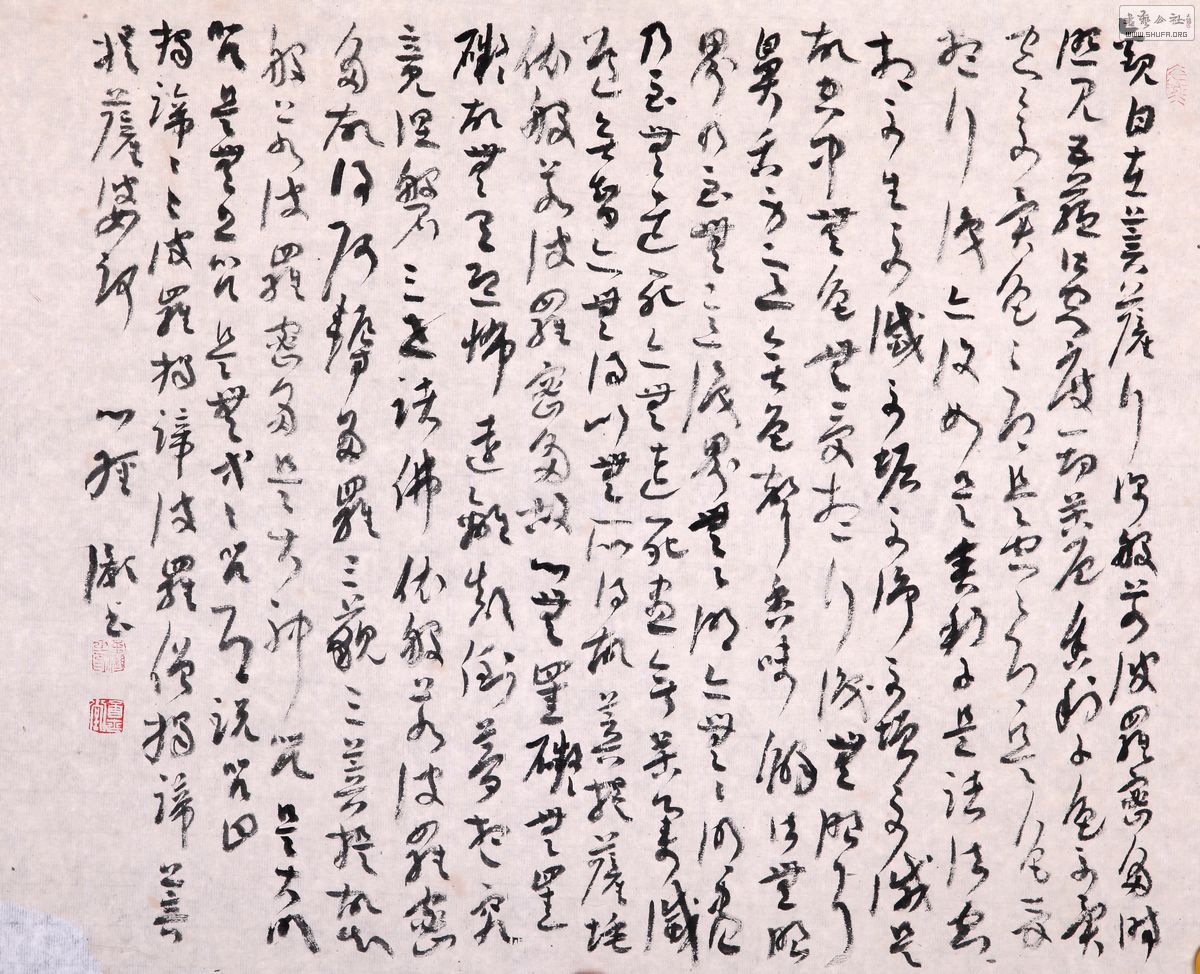 觀自在菩薩行深般若波羅密多時
照見五蘊皆空度一切苦厄舍利子色不異
空々不異色々即是空々即是色受
想行識亦復如是舍利子是諸法空
相不生不滅不垢不淨不增不減是
故空中無色無受想行識無眼耳
鼻舌身意無色聲香味觸法無眼
界乃至無意識界無々明亦無々明盡
乃至無老死亦無老死盡無苦集滅
道無智亦無得以無所得故菩提薩埵
依般若波羅密多故心無罣礙無罣
礙故無有恐怖遠離顛倒夢想究
竟涅槃三世諸佛依般若波羅密
多故得阿耨多羅三藐三菩提故知
般若波羅密多是大神咒是大明
咒是無上咒是無等々咒即說咒曰
揭諦々々波羅揭諦波羅僧揭諦菩
提薩婆訶 心經 書
書藝公社
WWW.SHUFA.ORG